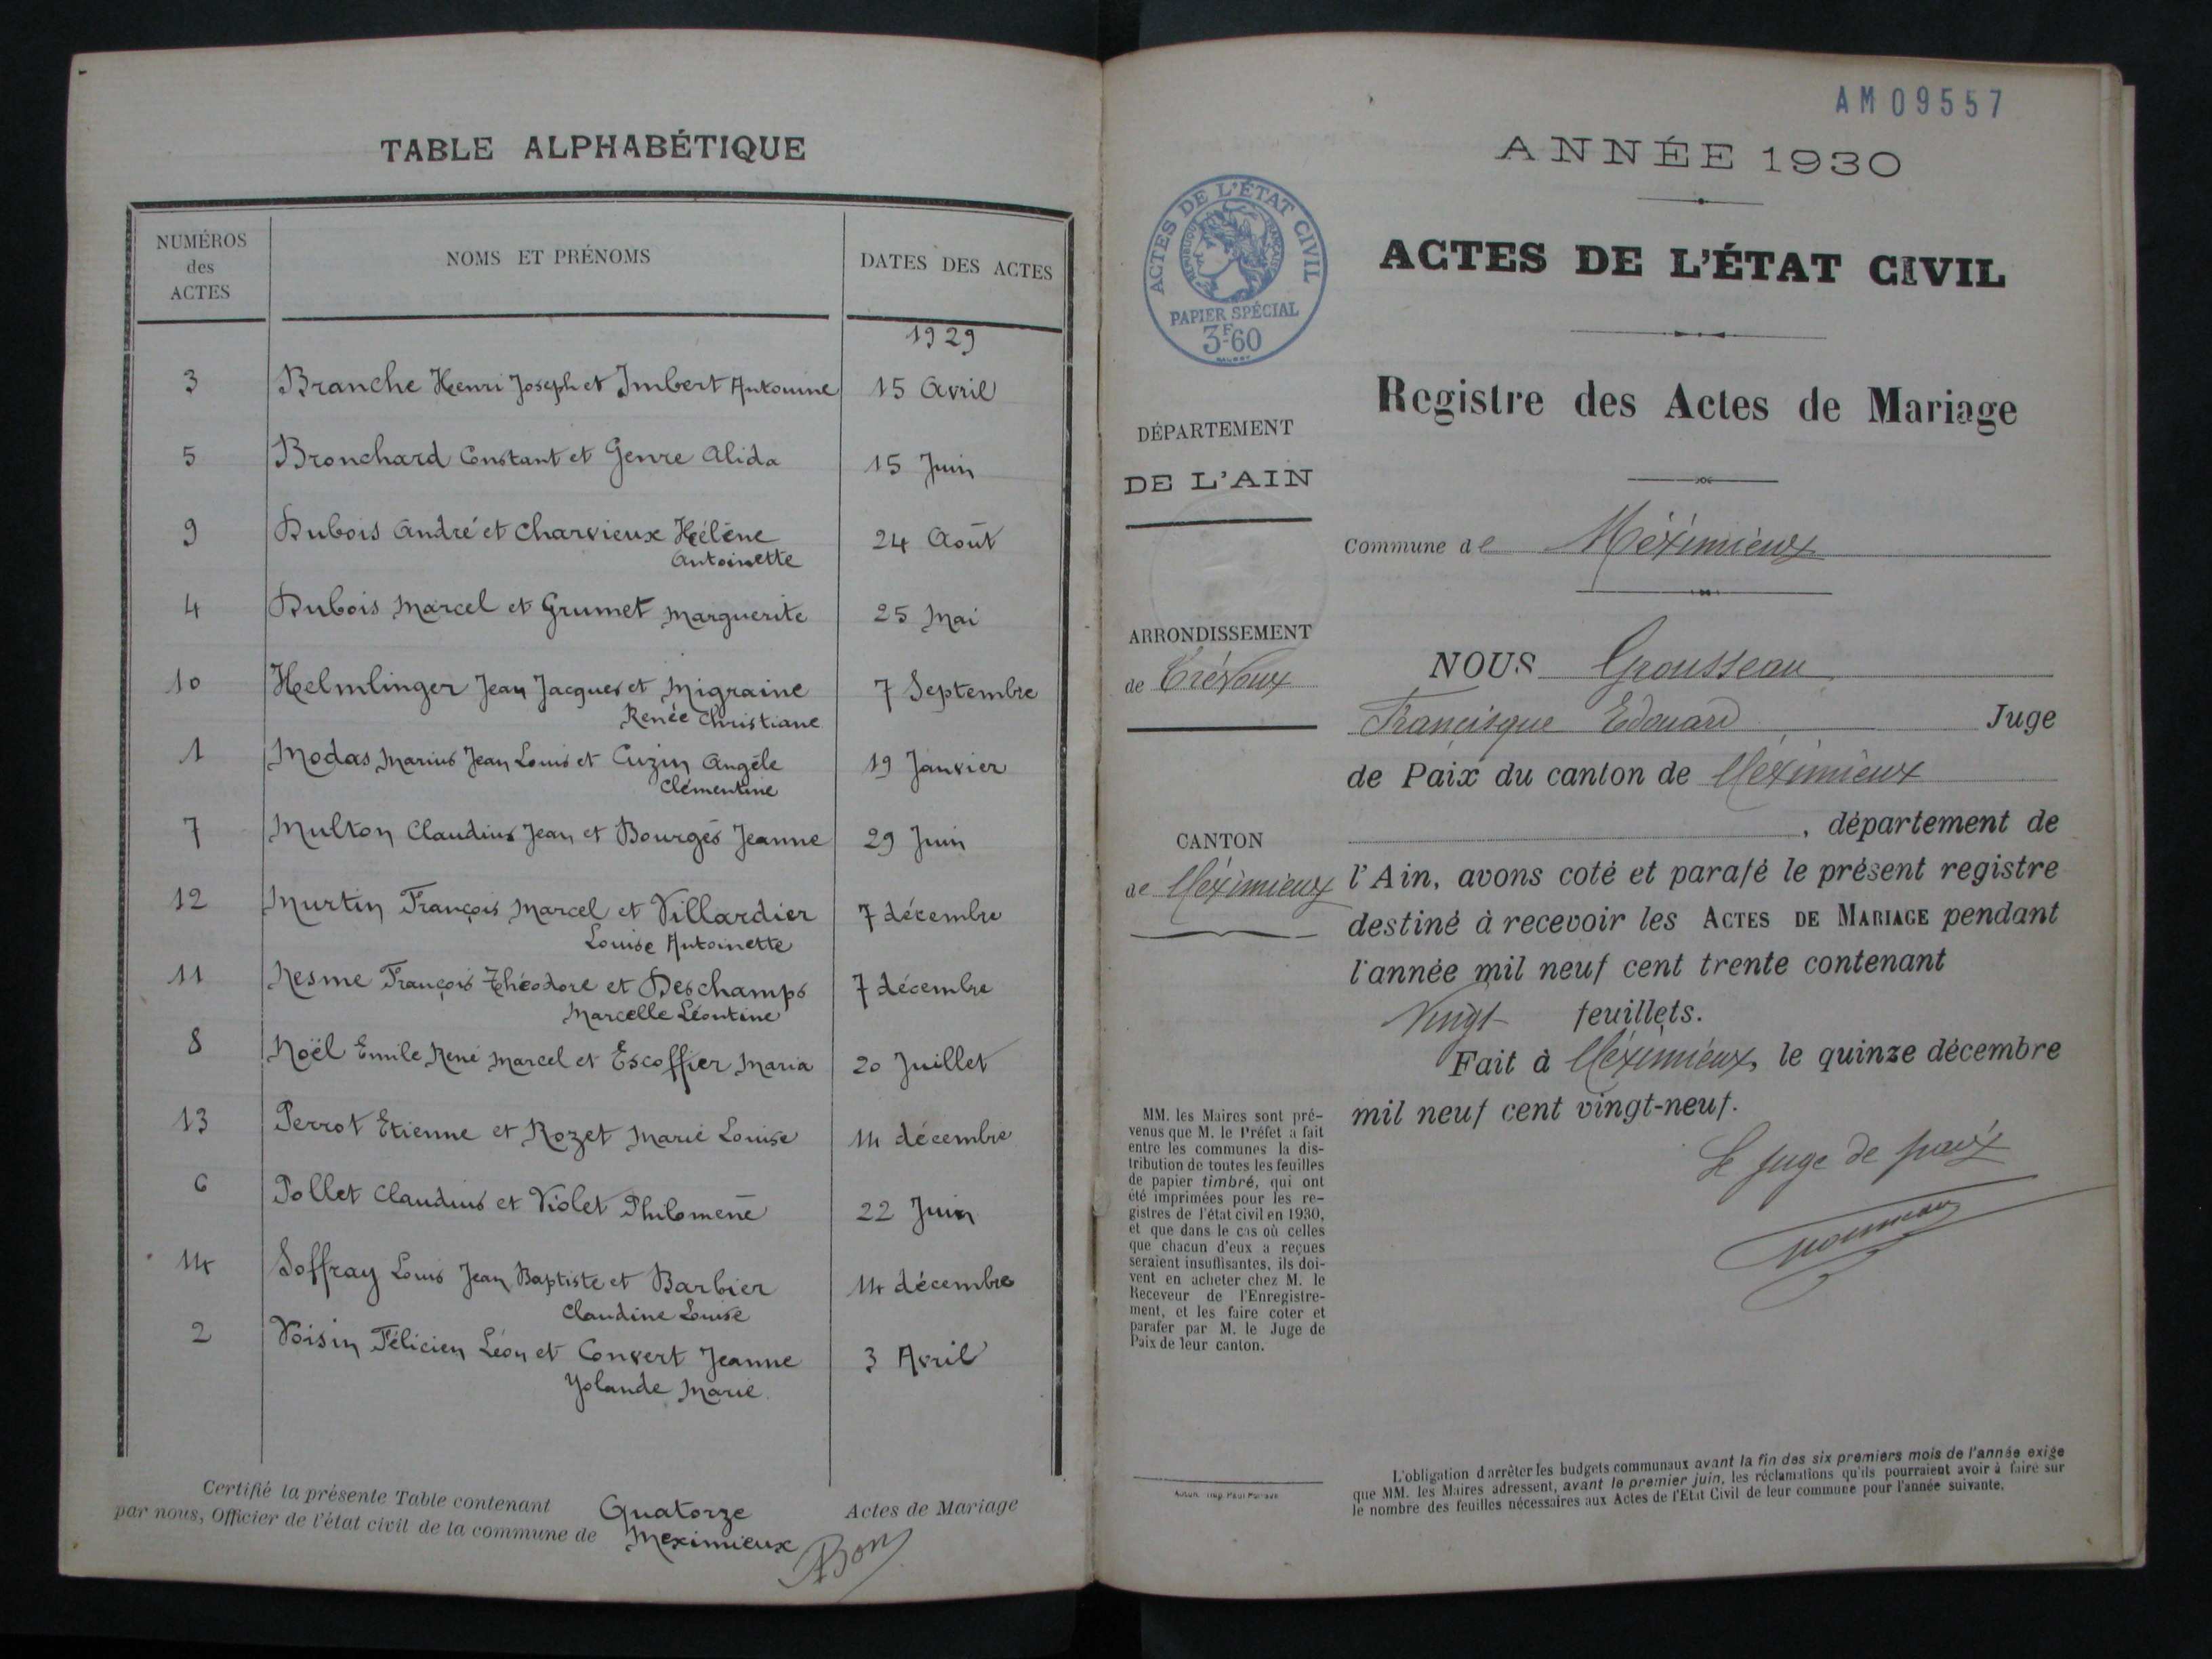 TABLE ALPHABÉTIQUE
NUMÉROS des ACTES
NOMS ET PRÉNOMS
DATES DES ACTES
1929
3 Branche Henri Joseph et Imbert Antonine 15 Avril
5 Bronchard Constant et Genre Alida 15 Juin
9 Dubois André et Charvieux Hélène 24 Août
Antoinette
4 Dubois Marcel et Grumet Marguerite 25 Mai
10 Helmlinger Jean Jacques et Migraine 7 Septembre
Renée Christiane
1 Modas Marius Jean Louis et Cuzin Angèle 19 Janvier
Clémentine
7 Multon Claudius Jean et Bourges Jeanne 29 Juin
12 Murtin François Marcel et Villardier 7 décembre
Louise Antoinette
11 Nesme François Théodore et Deschamps 7 décembre
Marcelle Léontine
8 Noël Emile René Marcel et Escoffier Maria 20 Juillet
13 Perrot Etienne et Rozet Marie Louise 14 décembre
6 Pollet Claudius et Violet Philomène 22 Juin
14 Soffray Louis Jean Baptiste et Barbier 14 décembre
Claudine Louise
2 Voisin Félicien Léon et Convert Jeanne 3 Avril
Yolande Marie.
Certifié la présente Table contenant Quatorze Actes de Mariage
par nous, Officier de l'état civil de la commune de Meximieux
AM09557
ANNÉE 1930
ACTES DE L'ÉTAT CIVIL
RÉPUBLIQUE FRANÇAISE
PAPIER SPÉCIAL
3F60
ACTES DE L'ÉTAT CIVIL
Registre des Actes de Mariage
DÉPARTEMENT
DE L'AIN
Commune de Méximieux
ARRONDISSEMENT
de Trévoux
CANTON
de Méximieux
NOUS Grousseau
Francisque Edouard Juge
de Paix du canton de Méximieux
, département de
l'Ain, avons coté et parafé le présent registre
destiné à recevoir les ACTES DE MARIAGE pendant
l'année mil neuf cent trente contenant
Vingt feuillets.
Fait à Méximieux, le quinze décembre
mil neuf cent vingt-neuf.
Le juge de paix
MM. les Maires sont pré-
venus que M. le Préfet a fait
entre les communes la dis-
tribution de toutes les feuilles
de papier timbré, qui ont
été imprimées pour les re-
gistres de l'état civil en 1930,
et que dans le cas où celles
que chacun d'eux a reçues
seraient insuffisantes, ils doi-
vent en acheter chez M. le
Receveur de l'Enregistre-
ment, et les faire coter et
parafer par M. le Juge de
Paix de leur canton.
L'obligation d'arrêter les budgets communaux avant la fin des six premiers mois de l'année exige
que MM. les Maires adressent, avant le premier juin, les réclamations qu'ils pourraient avoir à faire sur
le nombre des feuilles nécessaires aux Actes de l'Etat Civil de leur commune pour l'année suivante.